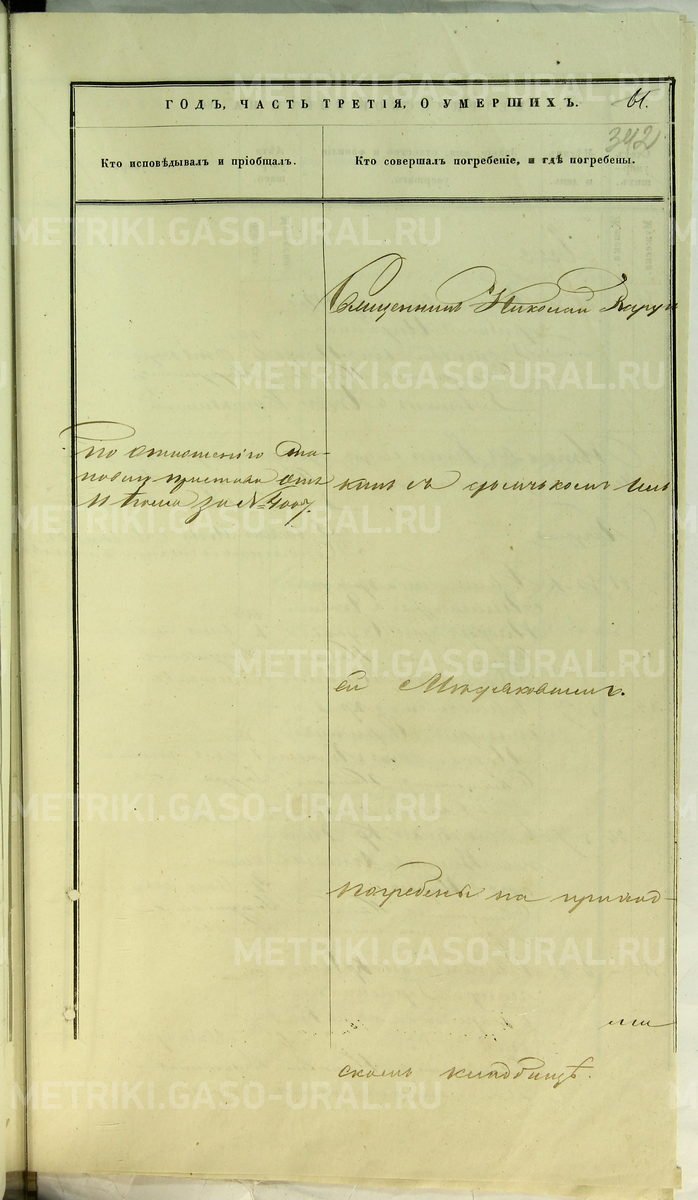 ГОДЪ, ЧАСТЬ ТРЕТІЯ, О УМЕРШИХЪ. 61.
342
Кто исповѣдывалъ и пріобщалъ.
Кто совершалъ погребеніе, и гдѣ погребены.
Священникъ Николай
По отношенію Ста-
новаго пристава отъ
11 Іюля за № 4007.
съ
ей
погребены на приход-
скомъ кладбищѣ.
METRIKI.GASO-URAL.RU
METRIKI.GASO-URAL.RU
METRIKI.GASO-URAL.RU
METRIKI.GASO-URAL.RU
METRIKI.GASO-URAL.RU
METRIKI.GASO-URAL.RU
METRIKI.GASO-URAL.RU
METRIKI.GASO-URAL.RU